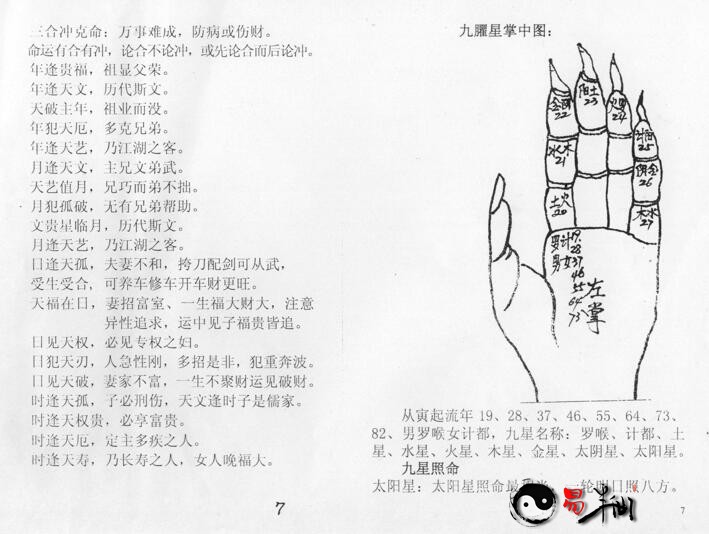 三合冲克命：万事难成，防病或伤财。
命运有合有冲，论合不论冲，或先论合而后论冲。
年逢贵福，祖显父荣。
年逢天文，历代斯文。
天破主年，祖业而没。
年犯天厄，多克兄弟。
年逢天艺，乃江湖之客。
月逢天文，主兄文弟武。
天艺值月，兄巧而弟不拙。
月犯孤破，无有兄弟帮助。
文贵星临月，历代斯文。
月逢天艺，乃江湖之客。
日逢天孤，夫妻不和，挎刀配剑可从武，
受生受合，可养车修车开车财更旺。
天福在日，妻招富室、一生福大财大，注意
异性追求，运中见子福贵皆追。
日见天权，必见专权之妇。
日犯天刃，人急性刚，多招是非，犯重奔波。
日见天破，妻家不富，一生不聚财运见破财。
时逢天孤，子必刑伤，天文逢时子是儒家。
时逢天权贵，必享富贵。
时逢天厄，定主多疾之人。
时逢天寿，乃长寿之人，女人晚福大。
7
九臞星掌中图：
22
阳土
23
24
25
水木
21
金
26
土火
20
木水
27
罗计19.
男女
28
37
46
55
64
73
左掌
从寅起流年 19、28、37、46、55、64、73、
82、男罗喉女计都，九星名称：罗喉、计都、土
星、水星、火星、木星、金星、太阴星、太阳星。
九星照命
太阳星：太阳星照命最，一轮明日照八方。
易半仙
7